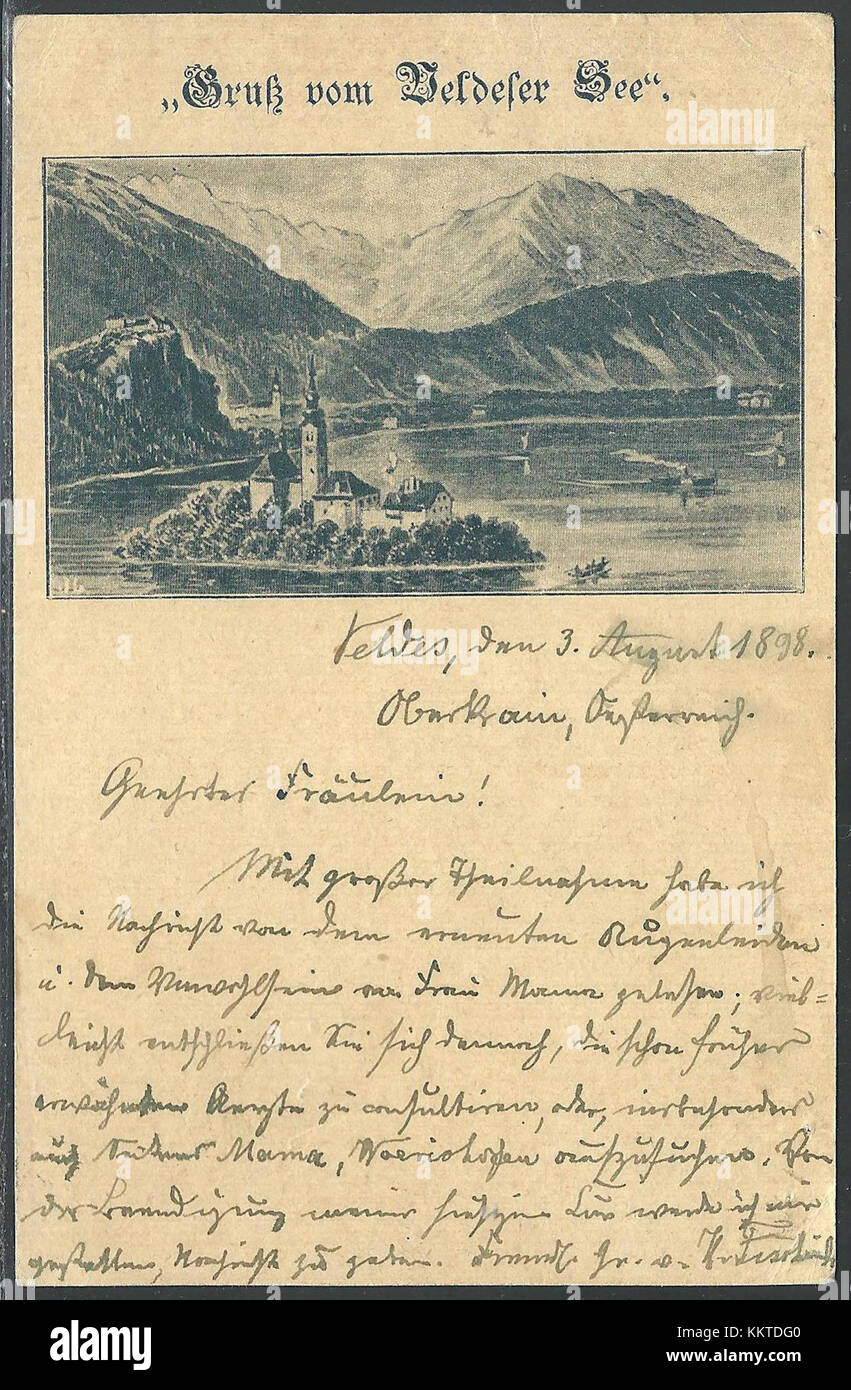 „Gruß vom Veldeser See“.
Veldes, den 3. August 1898.
Oberkrain, Oesterreich.
Geehrtes Fräulein!
Mit großer Theilnahme habe ich
die Nachricht von dem erneuten Augenleiden
u. dem Unwohlsein von Frau Mama gelesen; viel=
leicht entschließen Sie sich dennoch, die schon früher
erwähnten Aerzte zu consultiren, oder, insbesondere
Seitens Mama, Woerishofen aufzusuchen. Von
der Beendigung meiner hiesigen Cur werde ich mir
gestatten, Nachricht zu geben. Freundl. Gr. v.
alamy
Image ID: KKTDG0
www.alamy.com